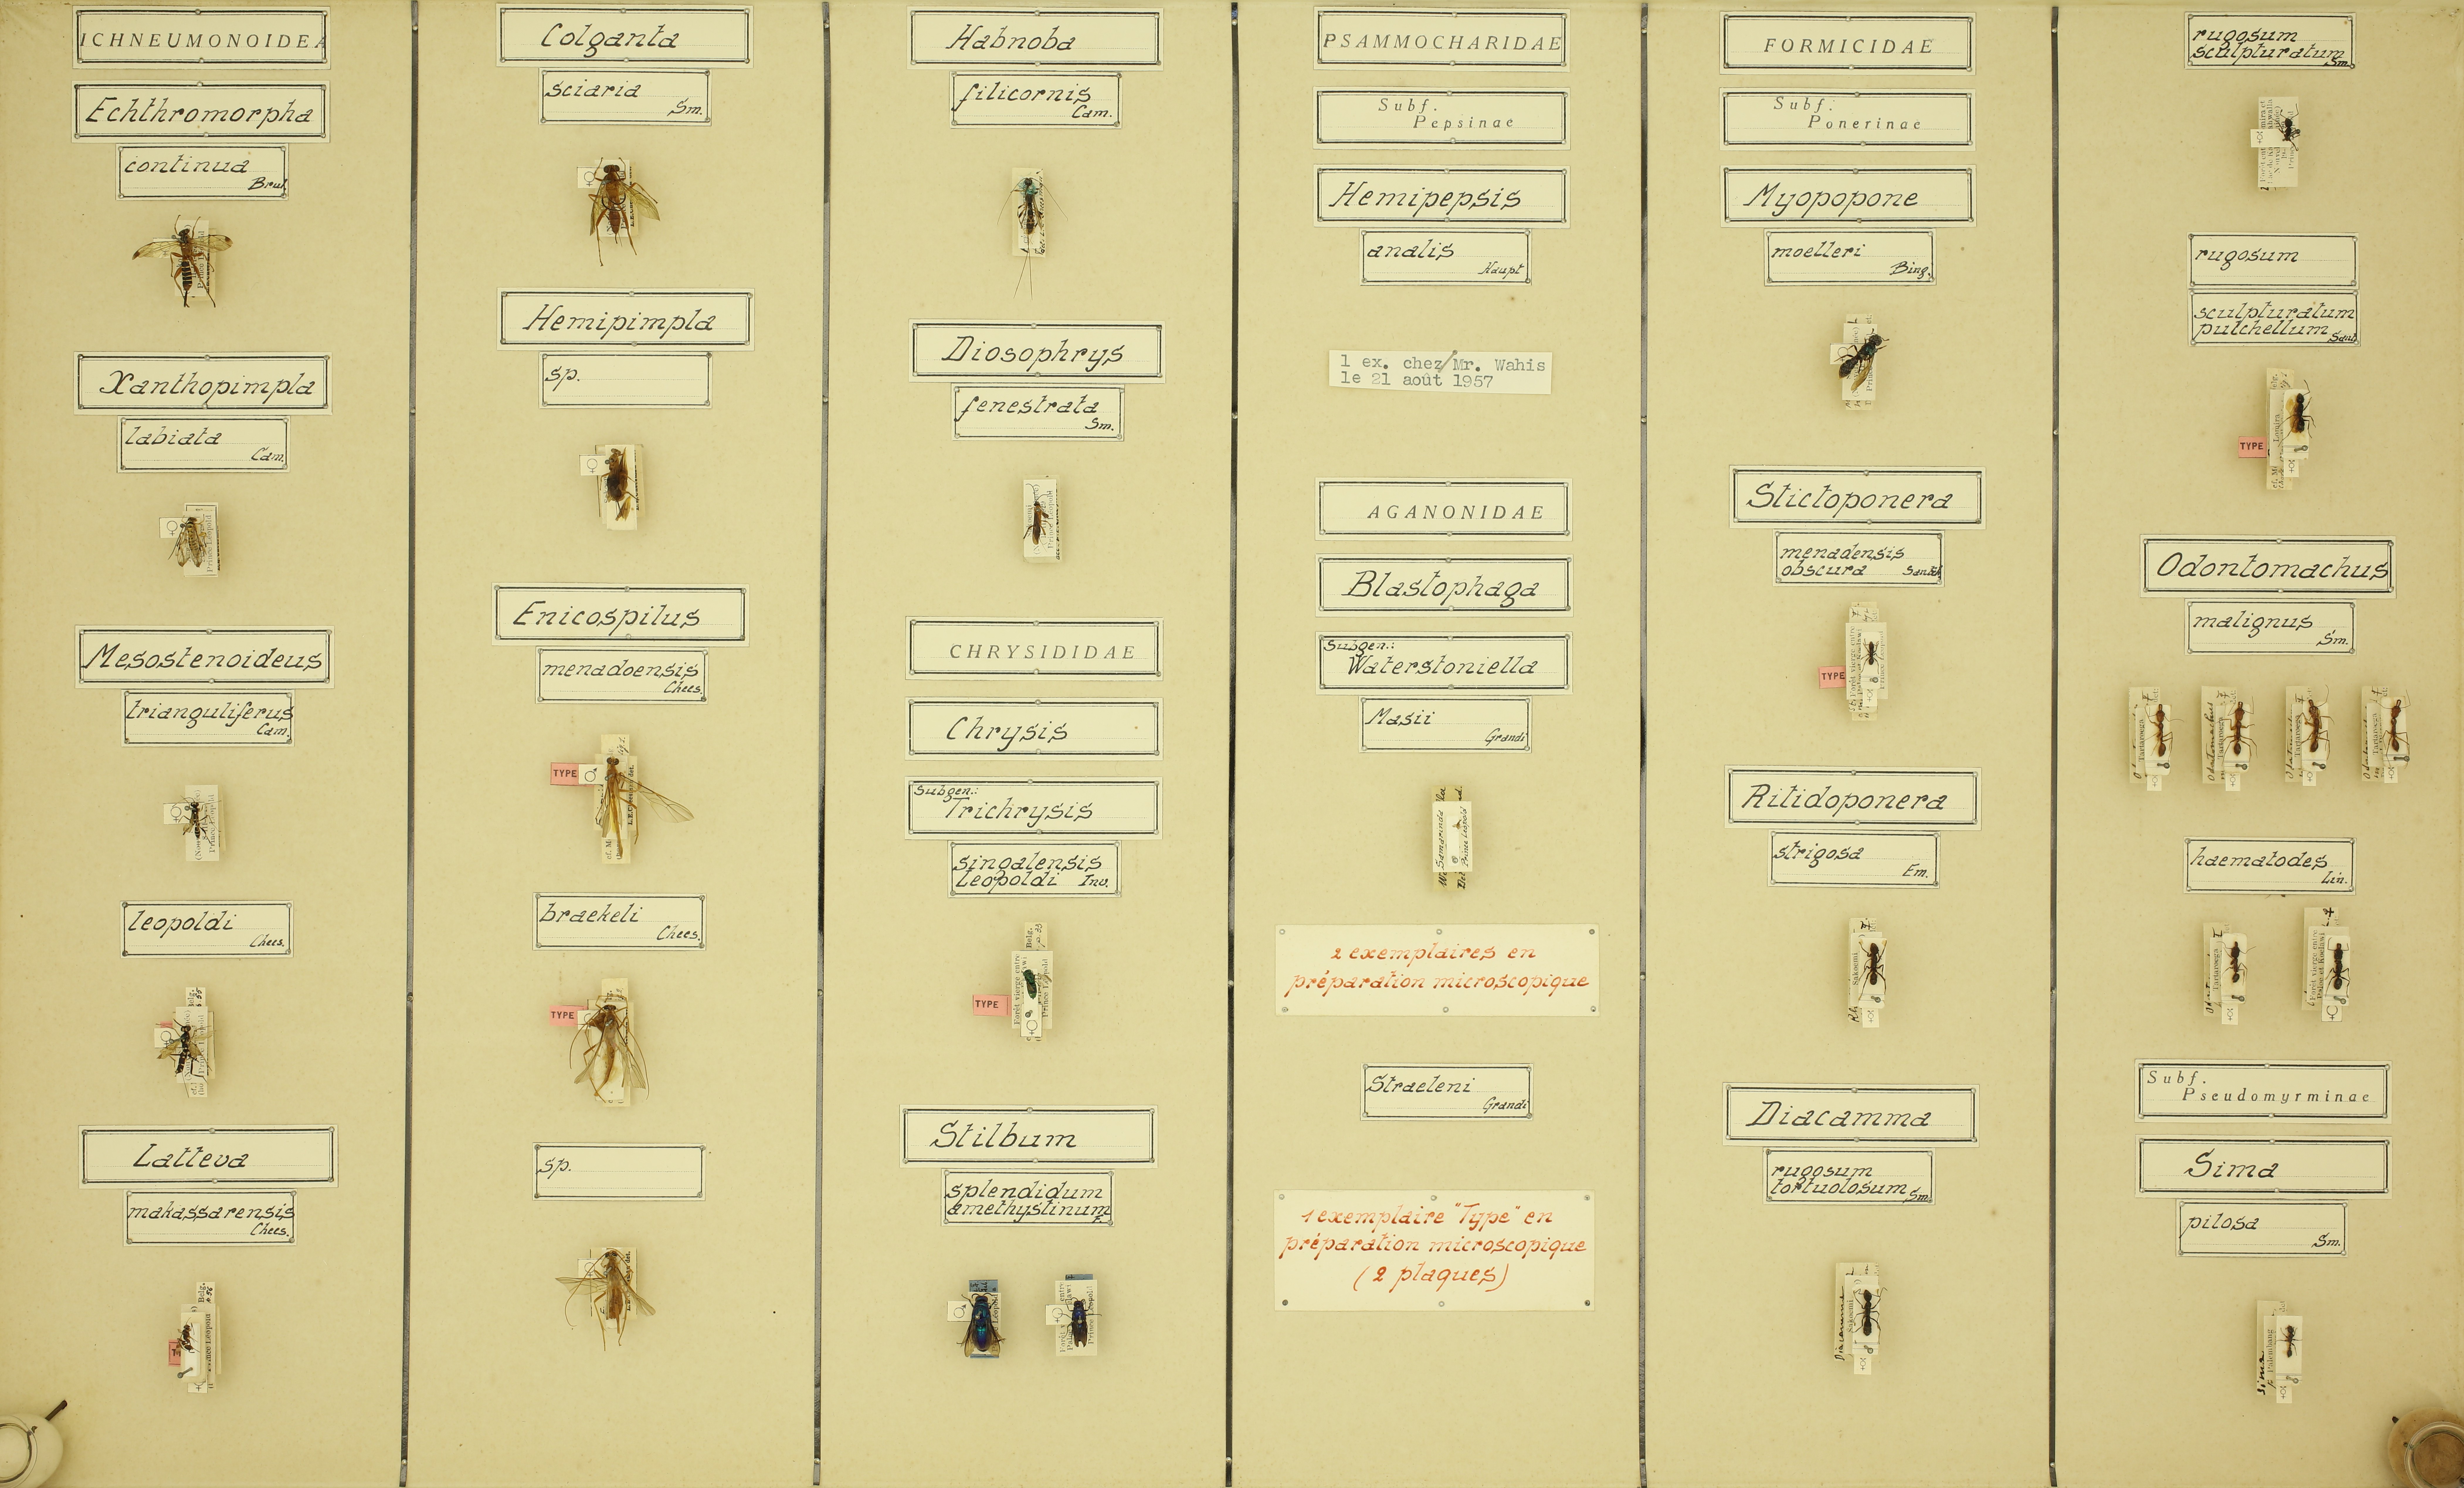 ICHNEUMONOIDEA
Echthromorpha
continua
Brul.
Xanthopimpla
labiata
Cam.
Mesostenoideus
trianguliferus
Cam.
leopoldi
Chees.
Latteva
makassarensis
Chees.
Colganta
sciaria
Sm.
Hemipimpla
sp.
Enicospilus
menadoensis
Chees.
TYPE
braekeli
Chees.
TYPE
sp.
Habnoba
filicornis
Cam.
Diosophrys
fenestrata
Sm.
CHRYSIDIDAE
Chrysis
Subgen.:
Trichrysis
singalensis
Leopoldi Inv.
TYPE
Stilbum
splendidum
amethystinum
F.
PSAMMOCHARIDAE
Subf.
Pepsinae
Hemipepsis
analis
Haupt
1 ex. chez/Mr. Wahis
le 21 août 1957
AGANONIDAE
Blastophaga
Subgen.:
Waterstoniella
Masii
Grandi
2 exemplaires en
préparation microscopique
Straeleni
Grandi
1 exemplaire "Type" en
préparation microscopique
(2 plaques)
FORMICIDAE
Subf.
Ponerinae
Myopopone
moelleri
Bing.
Stictoponera
menadensis
obscura
TYPE
Ritidoponera
strigosa
Em.
Sakoemi
Diacamma
rugosum
tortuolosum Sm.
Sakoemi
rugosum
sculpturatum
Sm.
rugosum
sculpturatum
pulchellum
TYPE
Odontomachus
malignus
Sm.
haematodes
Lin.
Subf.
Pseudomyrminae
Sima
pilosa
Sm.
Palembang